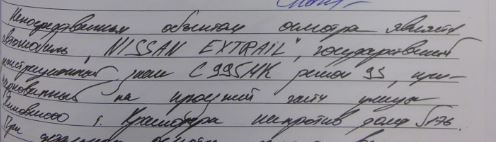 Непосредственным объектом осмотра является
автомобиль „NISSAN EXTRAIL", государственный
регистрационный знак С 995 НК регион 93, при-
на проезжей части улицы
г. Краснодара напротив дома №
При